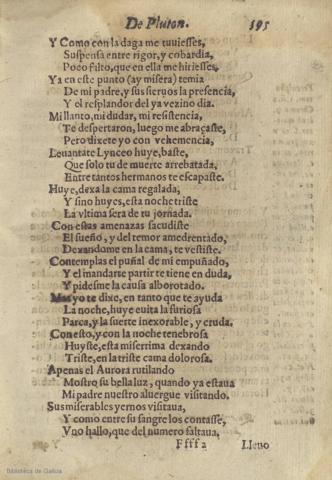 De Pluton. 195
Y Como con la daga me tuuiesses,
Suspensa entre rigor, y cobardia,
Poco falto, que en ella me hiriesses.
Ya en este punto (ay misera) temia
De mi padre, y sus sieruos la presencia,
Y el resplandor del ya vezino dia.
Mi llanto, mi dudar, mi resistencia,
Te despertaron, luego me abraçaste,
Pero dixete yo con vehemencia,
Leuantate Lynceo huye, baste,
Que solo tu de muerte arrebatada,
Entre tantos hermanos te escapaste.
Huye, dexa la cama regalada,
Y sino huyes, esta noche triste
La vltima sera de tu jornada.
Con estas amenazas sacudiste
El sueño, y del temor amedrentado,
Dexandome en la cama, te vestiste.
Contemplas el puñal de mi empuñado,
Y el mandarte partir te tiene en duda,
Y pidesme la causa alborotado.
Mas yo te dixe, en tanto que te ayuda
La noche, huye euita la furiosa
Parca, y la suerte inexorable, y cruda.
Con esto, y con la noche tenebrosa
Huyste, esta miserrima dexando
Triste, en la triste cama dolorosa.
Apenas el Aurora rutilando
Mostro su bella luz, quando ya estaua
Mi padre nuestro aluergue visitando.
Sus miserables yernos visitaua,
Y como entre su sangre los contasse,
Vno hallo, que del numero faltaua,
Ffff 2 Lleuo
Biblioteca de Galicia